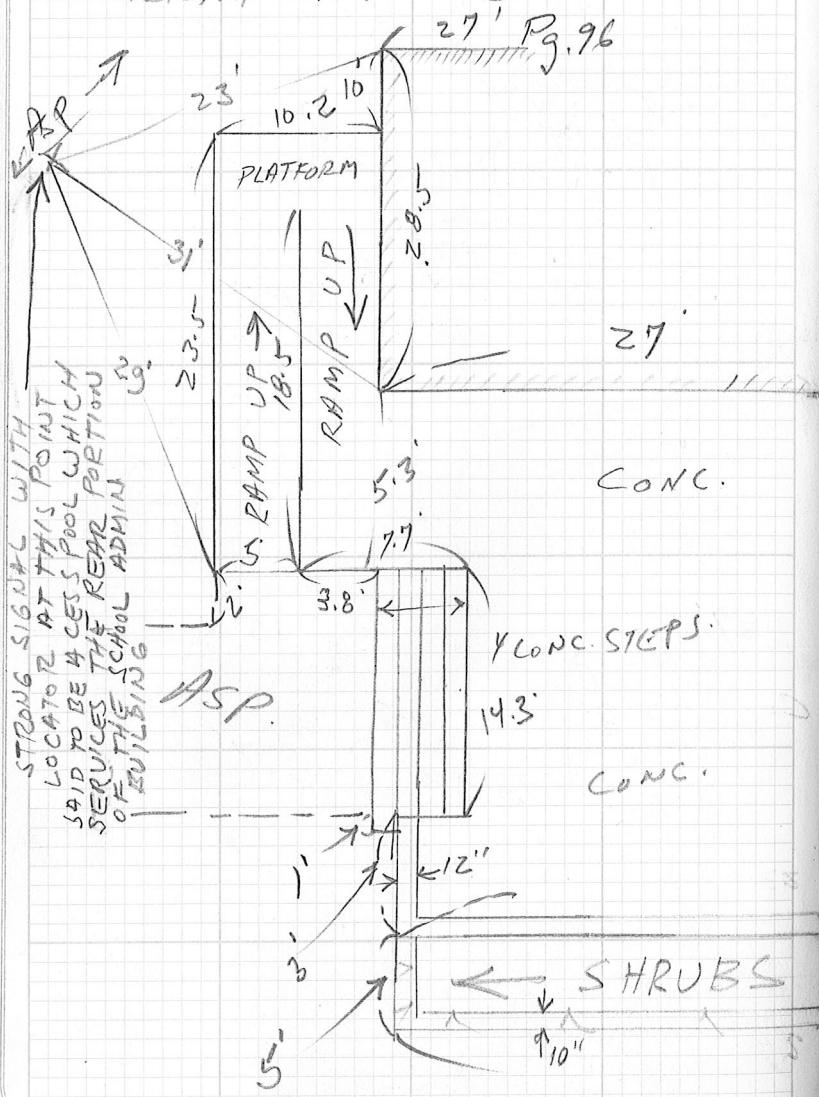 27' Pg.96
10
23'
10.2
ASP
PLATFORM
28.5
31'
23.5
RAMP UP
18.5
RAMP UP
27'
39'
5.3'
CONC.
5.
7.7'
2'
3.8'
4 CONC. STEPS.
14.3'
ASP.
CONC.
STRONG SIGNAL WITH
LOCATOR AT THIS POINT
SAID TO BE A CESS POOL WHICH
SERVICES THE REAR PORTION
OF THE SCHOOL ADMIN
BUILDING
1'
12"
3'
SHRUBS
5'
10"